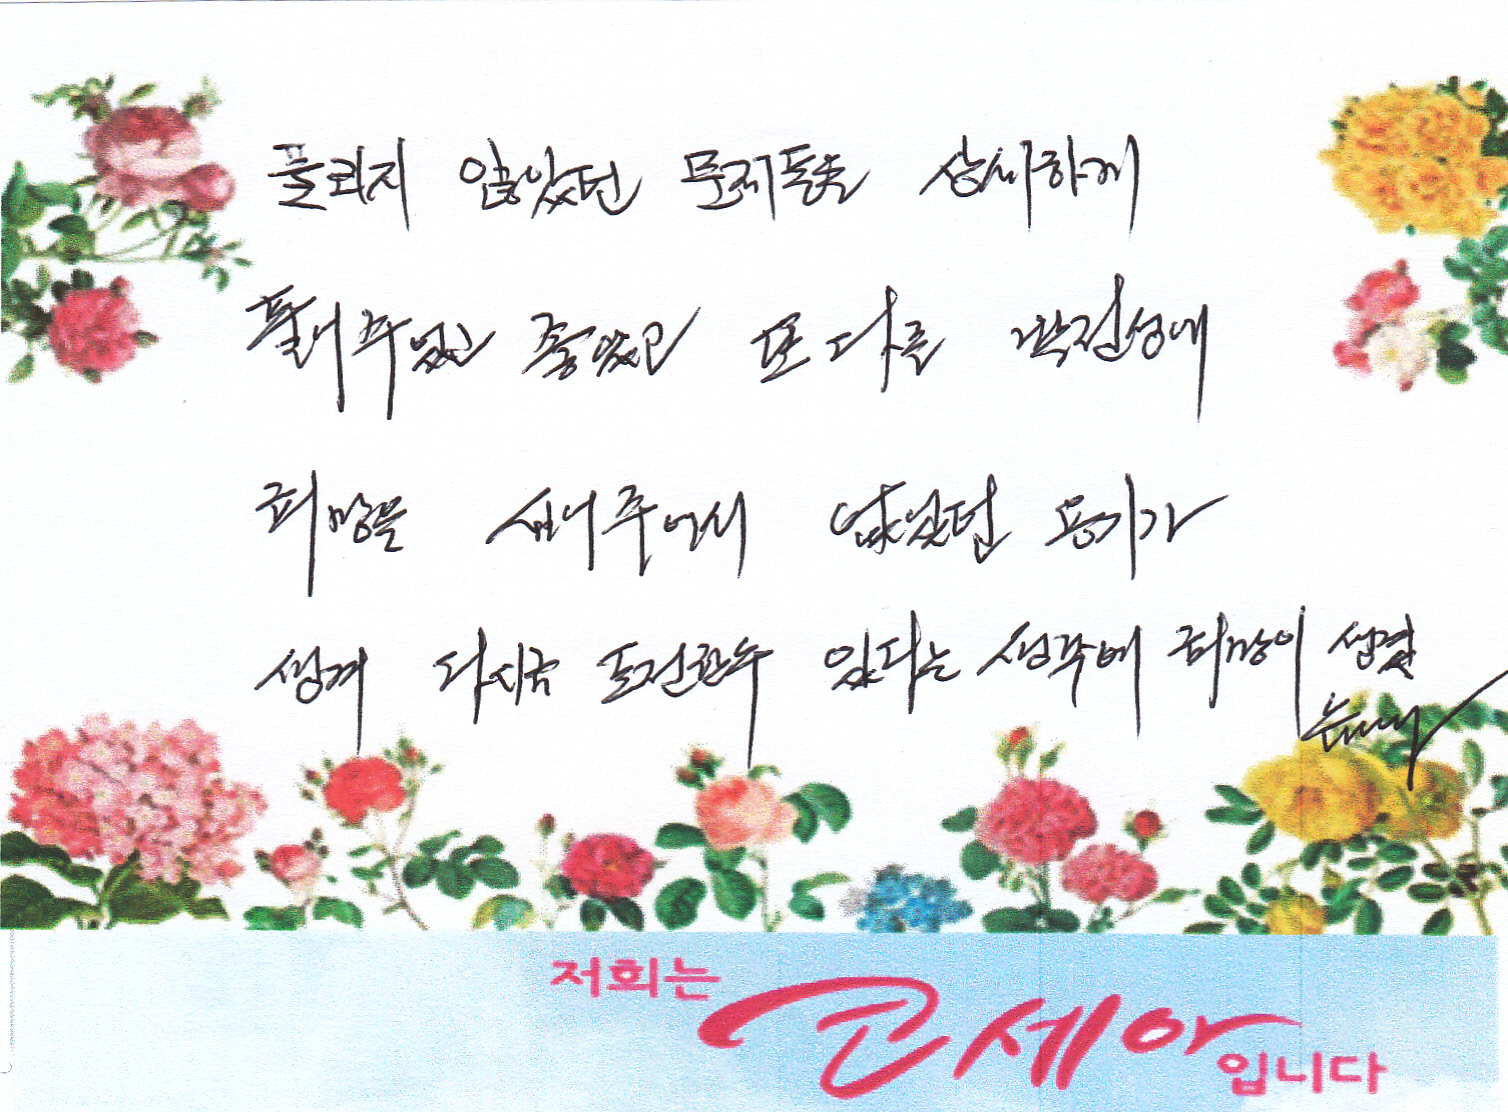 풀리지 않았던 문제들을 상세하게
풀어주었고 좋았고 또 다른
희망을 심어주어서 없었던 용기가
생겨 다시금 도전할수 있다는 생각에 희망이 생겼
습니다
저희는
고세아
입니다